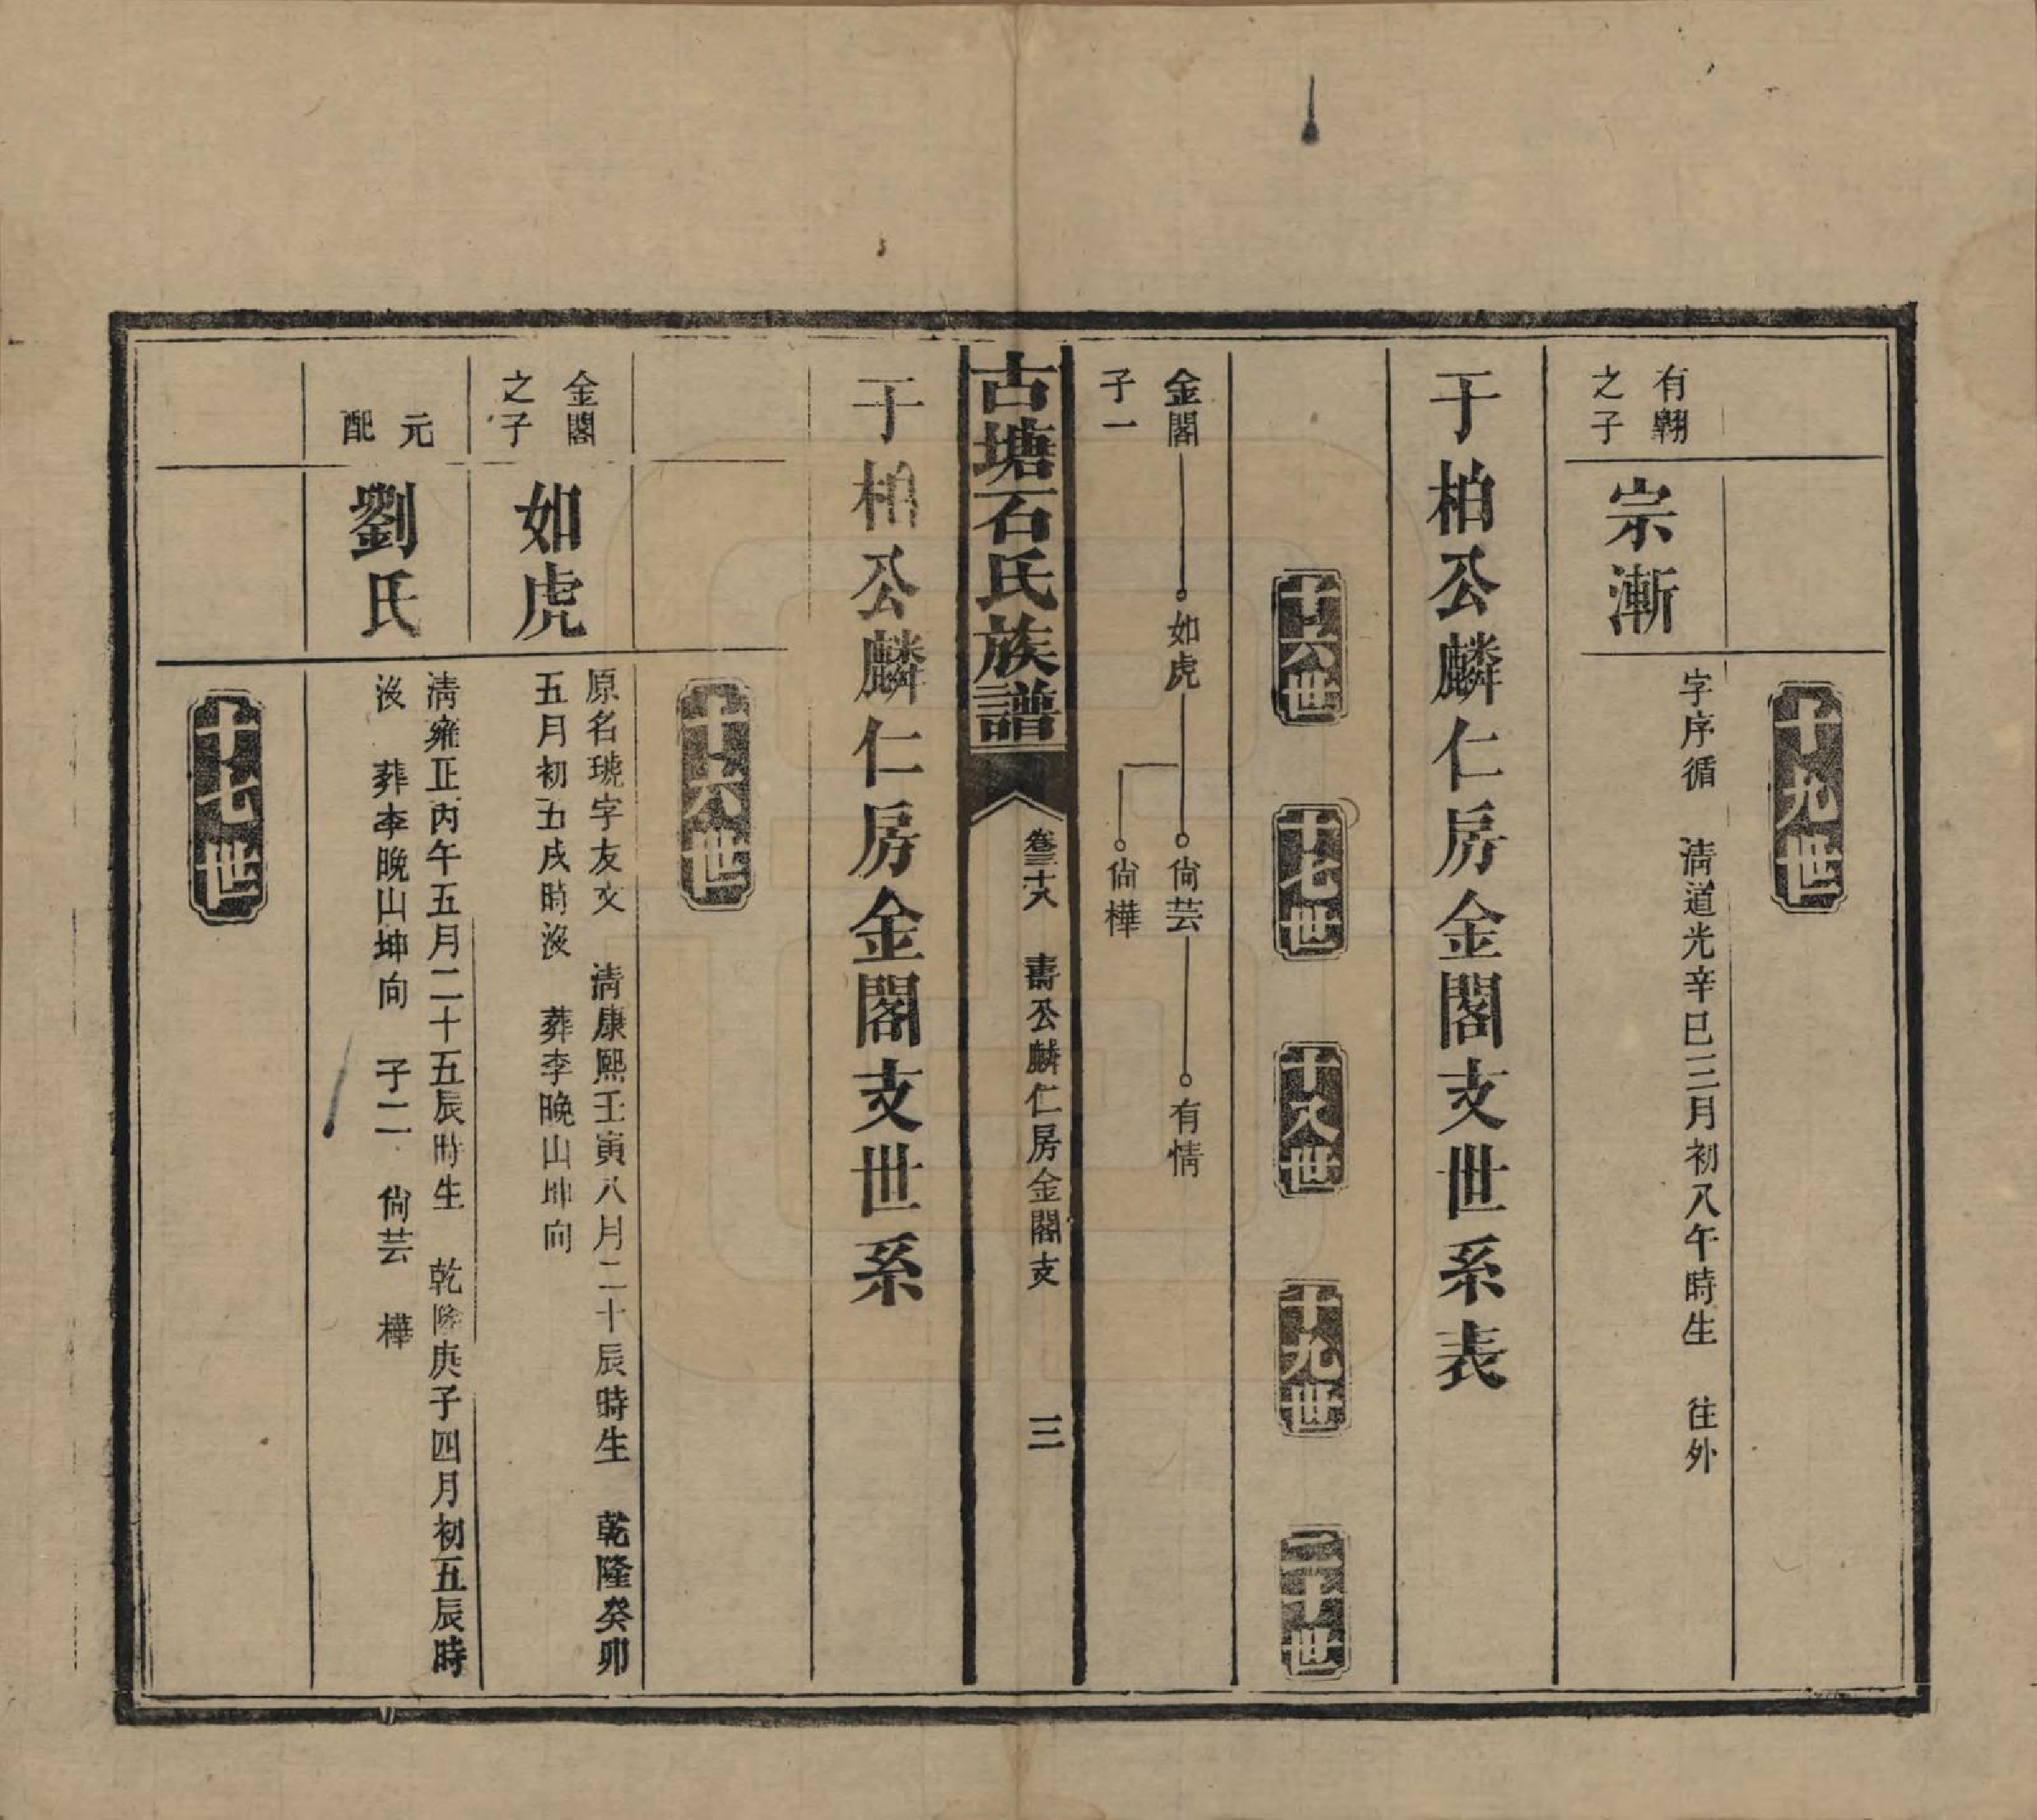 十九世
有翱
之子
宗漸
字序循　清道光辛巳三月初八午時生　往外
于柏公麟仁房金閣支世系表
十六世　十七世　十八世　十九世　二十世
金閣　如虎　尙芸　有情
子一　尙樺
古塘石氏族譜　卷三十八　壽公麟仁房金閣支　三
于柏公麟仁房金閣支世系
十六世
金閣
之子
如虎
原名琥字友文　清康熙壬寅八月二十辰時生　乾隆癸卯
五月初五戌時沒　葬李晚山坤向
元
配
劉氏
清雍正丙午五月二十五辰時生　乾隆庚子四月初五辰時
沒　葬李晚山坤向　子二　尙芸　樺
十七世